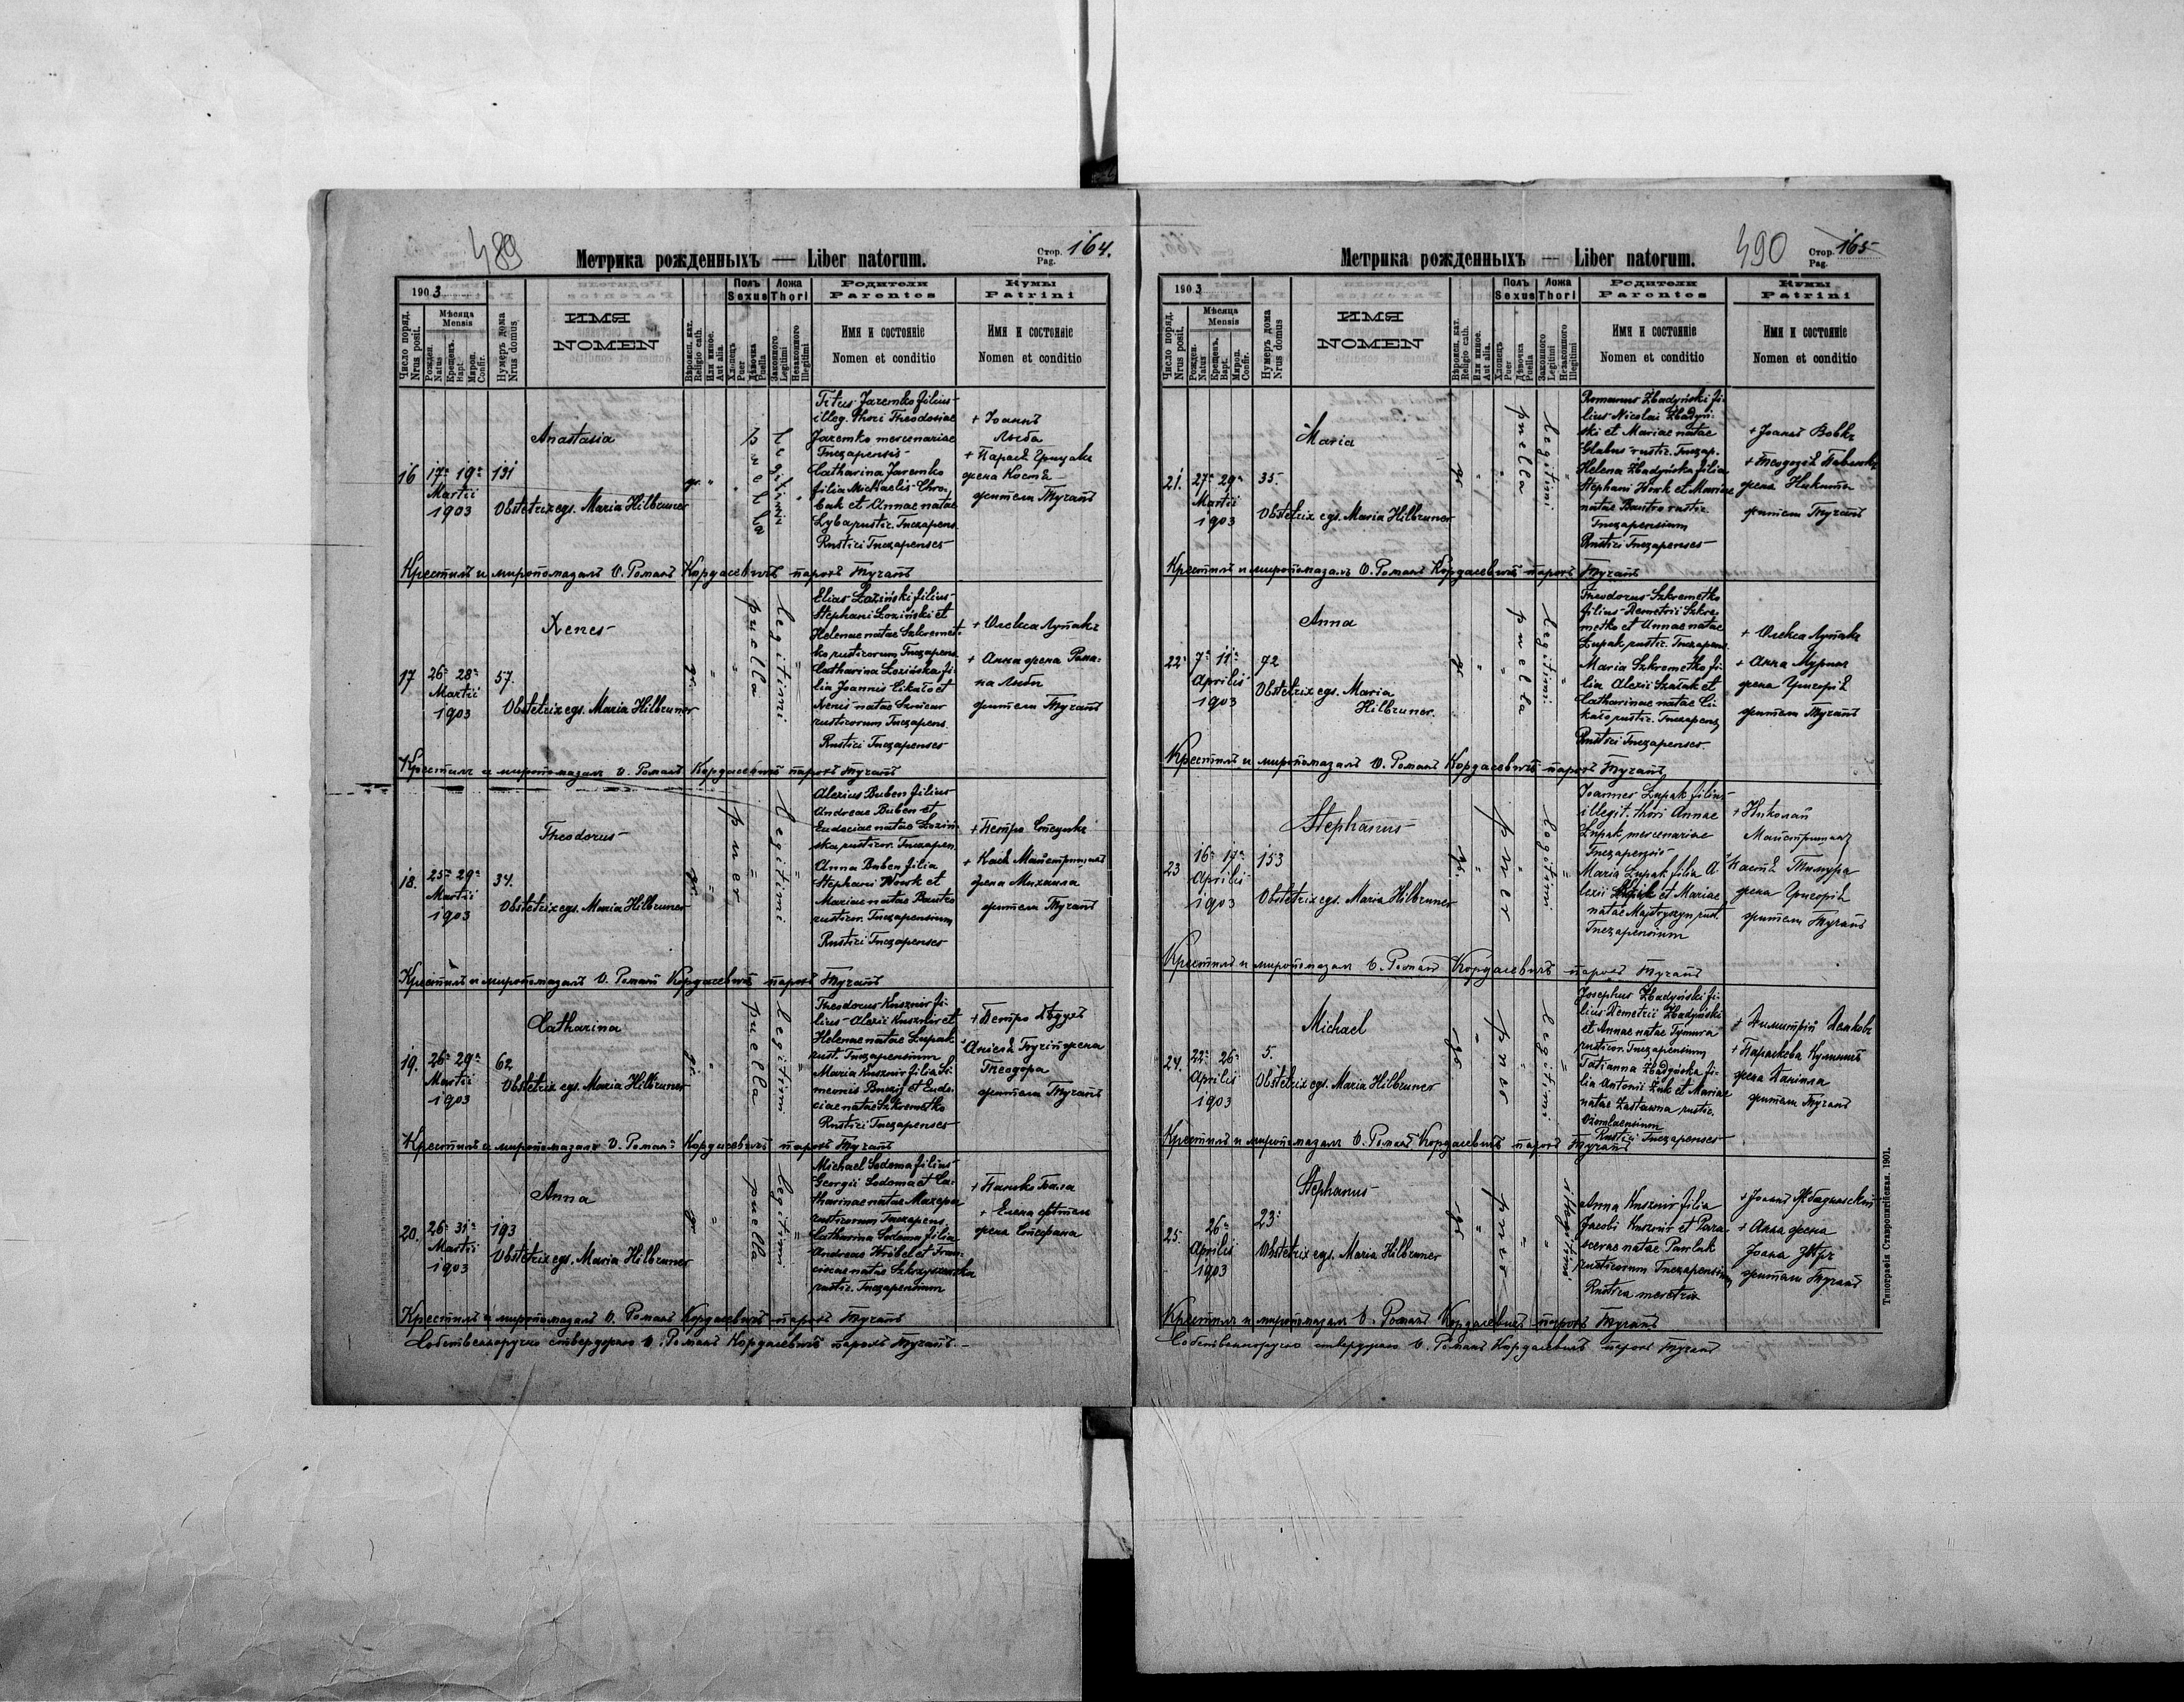 489
Метрика рожденныхъ — Liber natorum.
Стор. Pag. 164.
1903
Число поряд. Nrus posit.
Мѣсяца Mensis
Рожден. Natus
Крещенъ. Bapt.
Мироп. Confir.
Нумеръ дома Nrus domus
ИМЯ
NOMEN
Вѣроисп. кат. Religio cath.
Или иное. Aut alia.
Полъ Sexus
Хлопецъ Puer
Дѣвочка Puella
Ложа Thori
Законного Legitimi
Незаконного Illegitimi
Родители
Parentes
Имя и состояніе
Nomen et conditio
Кумы
Patrini
Имя и состояніе
Nomen et conditio
16
17. 19.
Martii
1903
131
Anastasia
Obstetrix egs. Maria Hilbruner
gr.
puella
Legitimi
Titus Jaremko filius
illeg. thori Theodosiae
Jaremko mercenariae
Tuczapensis
Catharina Jaremko
filia Michaelis
et Annae natae
Lyba rustic. Tuczapens.
Rustici Tuczapenses
+ Іоаннъ
Лыба
жена Костя
жители Тучапъ
Крестилъ и миропомазалъ О. Романъ Кордасевичъ парохъ Тучапъ
17
26. 28.
Martii
1903
57.
Xenes
Obstetrix egs. Maria Hilbruner
gr.
puella
legitimi
Elias Łoziński filius
Stephani Łoziński et
Helenae natae Szkremet-
ko rusticorum Tuczapens.
Catharina Łozińska fi-
lia Joannis Cikało et
Xenis natae
rusticorum Tuczapens.
Rustici Tuczapenses
+ Олекса Лупакъ
+ Анна жена Рома-
на Лыбы
жители Тучапъ
Крестилъ и миропомазалъ О. Романъ Кордасевичъ парохъ Тучапъ
18.
25. 29.
Martii
1903
34.
Theodorus
Obstetrix egs. Maria Hilbruner
gr.
puer
legitimi
Alexius Buben filius
Andreae Buben et
Eudociae natae Łoziń-
ska, rusticor. Tuczapen.
Anna Buben filia
Stephani Wowk et
Mariae natae Bautro
rusticor. Tuczapensium
Rustici Tuczapenses
+ Петро Стецикъ
жена Михаила
жители Тучапъ
Крестилъ и миропомазалъ О. Романъ Кордасевичъ парохъ Тучапъ
19.
26. 29.
Martii
1903
62
Catharina
Obstetrix egs. Maria Hilbruner
gr.
puella
legitimi
Theodorus Kusznir fi-
lius Alexii Kusznir et
Helenae natae Łupak
rust. Tuczapensium
Maria Kusznir filia Si-
meonis et Eudo-
ciae natae Szkremetko
Rustici Tuczapenses
+ Петро
жена
Теодора
жители Тучапъ
Крестилъ и миропомазалъ О. Романъ Кордасевичъ парохъ Тучапъ
20.
26. 31.
Martii
1903
193
Anna
Obstetrix egs. Maria Hilbruner
gr.
puella
legitimi
Michael Sodoma filius
Georgii Sodoma et Ca-
tharinae natae Mazepa
rusticorum Tuczapens.
Catharina Sodoma filia
Andreae Hribel et Fran-
ciscae natae
rustic. Tuczapensium
+ Елена
жена Стефана
Крестилъ и миропомазалъ О. Романъ Кордасевичъ парохъ Тучапъ
Собственноручно ствердораю О. Романъ Кордасевичъ парохъ Тучапъ.
490
Метрика рожденныхъ — Liber natorum.
Стор. Pag. 165
1903
Число поряд. Nrus posit.
Мѣсяца Mensis
Рожден. Natus
Крещенъ. Bapt.
Мироп. Confir.
Нумеръ дома Nrus domus
ИМЯ
NOMEN
Вѣроисп. кат. Religio cath.
Или иное. Aut alia.
Полъ Sexus
Хлопецъ Puer
Дѣвочка Puella
Ложа Thori
Законного Legitimi
Незаконного Illegitimi
Родители
Parentes
Имя и состояніе
Nomen et conditio
Кумы
Patrini
Имя и состояніе
Nomen et conditio
21.
27. 29.
Martii
1903
35.
Maria
Obstetrix egs. Maria Hilbruner
gr
puella
legitimi
Romanus Żbadyński fi-
lius Nicolai Żbadyń-
ski et Mariae natae
Glabus rustic. Tuczap.
Helena Żbadyńska filia
Stephani Wowk et Mariae
natae Bautro rustic.
Tuczapensium
Rustici Tuczapenses
+ Іоаннъ Вовкъ
жена Никиты
жители Тучапъ
Крестилъ и миропомазалъ О. Романъ Кордасевичъ парохъ Тучапъ
22.
7. 11.
Aprilis
1903
72
Anna
Obstetrix egs. Maria
Hilbruner.
gr
puella
legitimi
Theodorus Szkremetko
filius Demetrii Szkre-
metko et Annae natae
Łupak rustic. Tuczapens.
Maria Szkremetko fi-
lia Alexii et
Catharinae natae Ci-
kało rustic. Tuczapens,
Rustici Tuczapenses.
+ Олекса Лупакъ
+ Анна
жена Григорія
жители Тучапъ
Крестилъ и миропомазалъ О. Романъ Кордасевичъ парохъ Тучапъ,
23
16. 17.
Aprilis
1903
153
Stephanus
Obstetrix egs. Maria Hilbruner
gr.
puer
legitimi
Joannes Łupak filius
illegit. thori Annae
Łupak mercenariae
Tuczapensis
Maria Łupak filia A-
lexii et Mariae
natae Majstryszyn rust.
Tuczapensium
+ Николай
Майстришинъ
жена Григорія
жители Тучапъ
Крестилъ и миропомазалъ О. Романъ Кордасевичъ парохъ Тучапъ
24.
22. 26.
Aprilis
1903
5.
Michael
Obstetrix egs. Maria Hilbruner
gr
puer
legitimi
Josephus Żbadyński fi-
lius Demetrii Żbadyński
et Annae natae Tymura
rusticor. Tuczapensium
Tatianna Żbadyńska fi-
lia Antonii Żuk et Mariae
natae Zastawna rustic.
Rustici Tuczapenses
+ Димитрій
+ Параскева
жена Даніила
жители Тучапъ
Крестилъ и миропомазалъ О. Романъ Кордасевичъ парохъ Тучапъ
25.
26.
Aprilis
1903
23.
Stephanus
Obstetrix egs. Maria Hilbruner
gr
puer
illegitimi
Anna Kusznir filia
Jacobi Kusznir et Para-
scevae natae Pawluk
rusticorum Tuczapensium
Rustica meretrix
+ Іоаннъ Жбадынскій
+ Анна жена
Іоана
жители Тучапъ
Крестилъ и миропомазалъ О. Романъ Кордасевичъ парохъ Тучапъ
Собственноручно ствердораю О. Романъ Кордасевичъ парохъ Тучапъ
Типографія Ставропигійская. 1901.